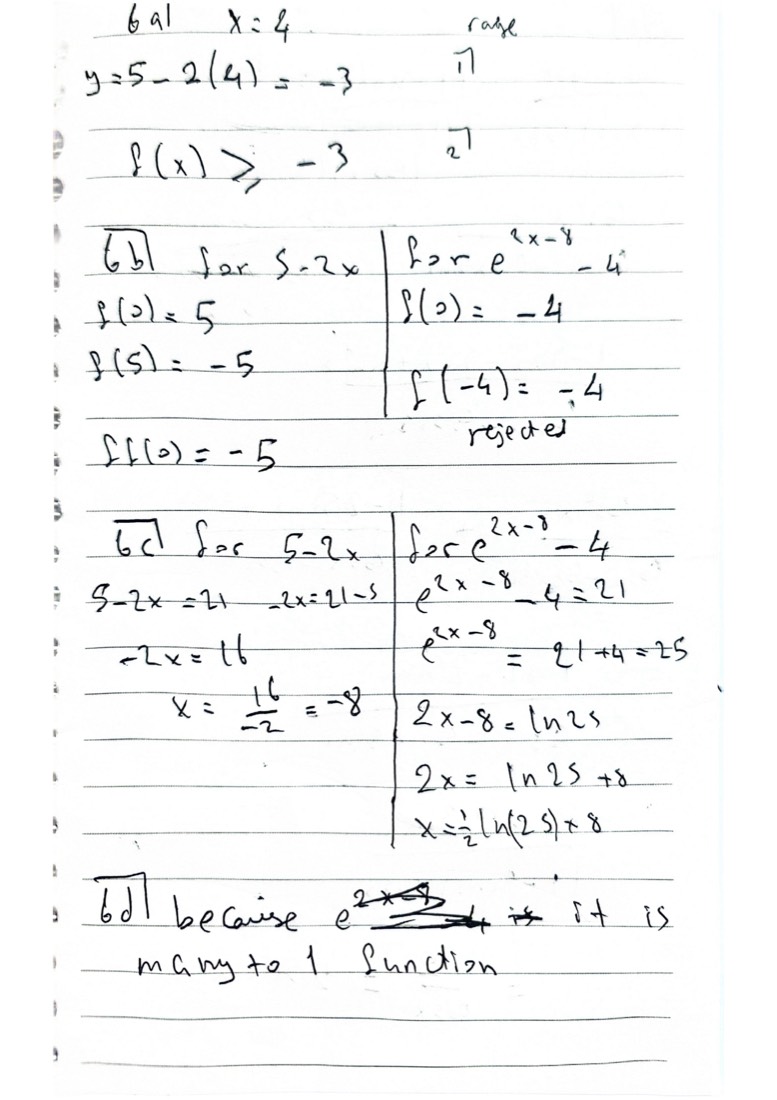 6a) x = 4 range
y = 5 - 2(4) = -3 1)
f(x) ⩾ -3 2)
6b) for 5-2x
f(0) = 5
f(5) = -5
ff(0) = -5
for e^{2x-8} - 4
f(0) = -4
f(-4) = -4
rejected
6c) for 5-2x
5-2x = 21 -2x = 21-5
-2x = 16
x = 16/-2 = -8
for e^{2x-8} - 4
e^{2x-8} - 4 = 21
e^{2x-8} = 21+4 = 25
2x-8 = ln25
2x = ln25 +8
x = 1/2 ln(25) + 8
6d) because e it is
many to 1 function